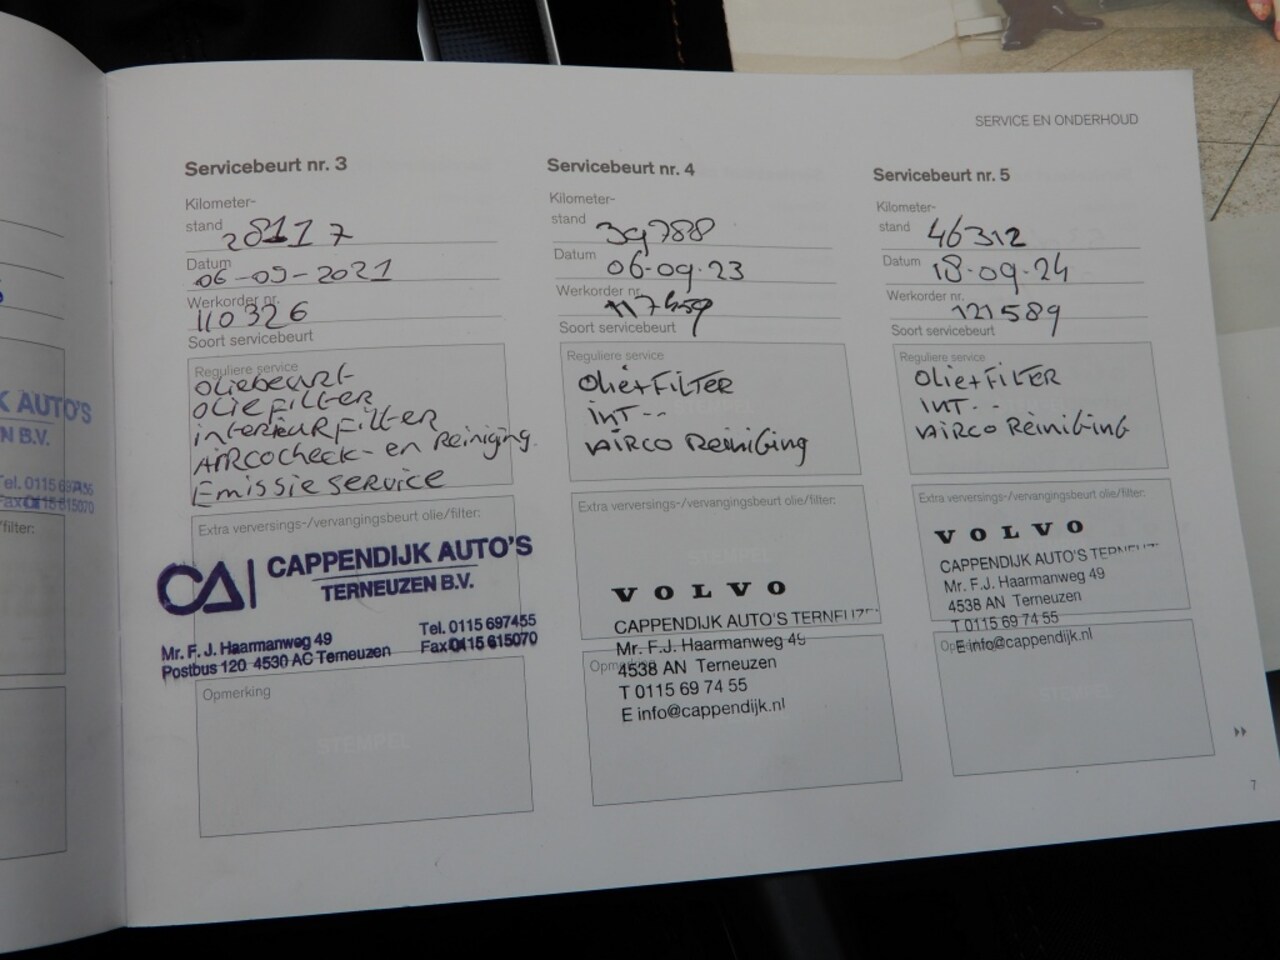 SERVICE EN ONDERHOUD
Servicebeurt nr. 3
Kilometer-
stand 28117
Datum
06-09-2021
Werkorder nr.
110326
Soort servicebeurt
Reguliere service
Oliebeurt
Oliefilter
interieurfilter
Aircocheck-en Reiniging
Emissie service
Extra verversings-/vervangingsbeurt olie/filter:
CA| CAPPENDIJK AUTO'S
TERNEUZEN B.V.
Mr. F. J. Haarmanweg 49 Tel. 0115 697455
Postbus 120 4530 AC Terneuzen Fax 0115 615070
Opmerking
STEMPEL
Servicebeurt nr. 4
Kilometer-
stand 39788
Datum 06-09-23
Werkorder nr.
Soort servicebeurt
Reguliere service
Olie+FiLTER
iNT--
AiRCO ReiniGing
Extra verversings-/vervangingsbeurt olie/filter:
VOLVO
CAPPENDIJK AUTO'S TERNEUZEN
Mr. F.J. Haarmanweg 49
Opmerking
4538 AN Terneuzen
T 0115 69 74 55
E info@cappendijk.nl
Servicebeurt nr. 5
Kilometer-
stand 46312
Datum 18-09-24
Werkorder nr.
121589
Soort servicebeurt
Reguliere service
Olie+FiLTER
iNT--
AiRCO ReiniGing
Extra verversings-/vervangingsbeurt olie/filter:
VOLVO
CAPPENDIJK AUTO'S TERNEUZEN
Mr. F.J. Haarmanweg 49
4538 AN Terneuzen
T 0115 69 74 55
Opmerking
E info@cappendijk.nl
7
K AUTO'S
N B.V.
Tel. 0115
Fax 0115 615070
/filter: